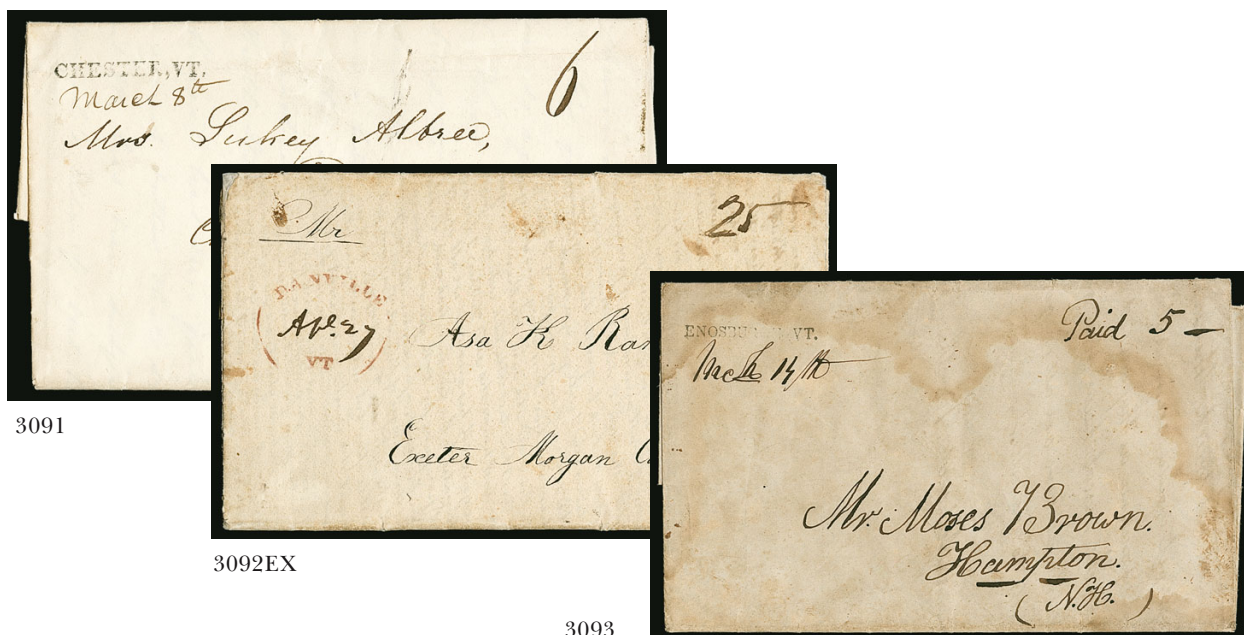 CHESTER, VT.
March 8th
6
Mrs. Sukey Albree,
3091
Mr
25
DANVILLE
Apl. 27
VT
Asa K
Exeter Morgan
3092EX
ENOSBU VT.
Paid 5
Mch 14th
Mr. Moses Brown.
Hampton.
(N.H.)
3093